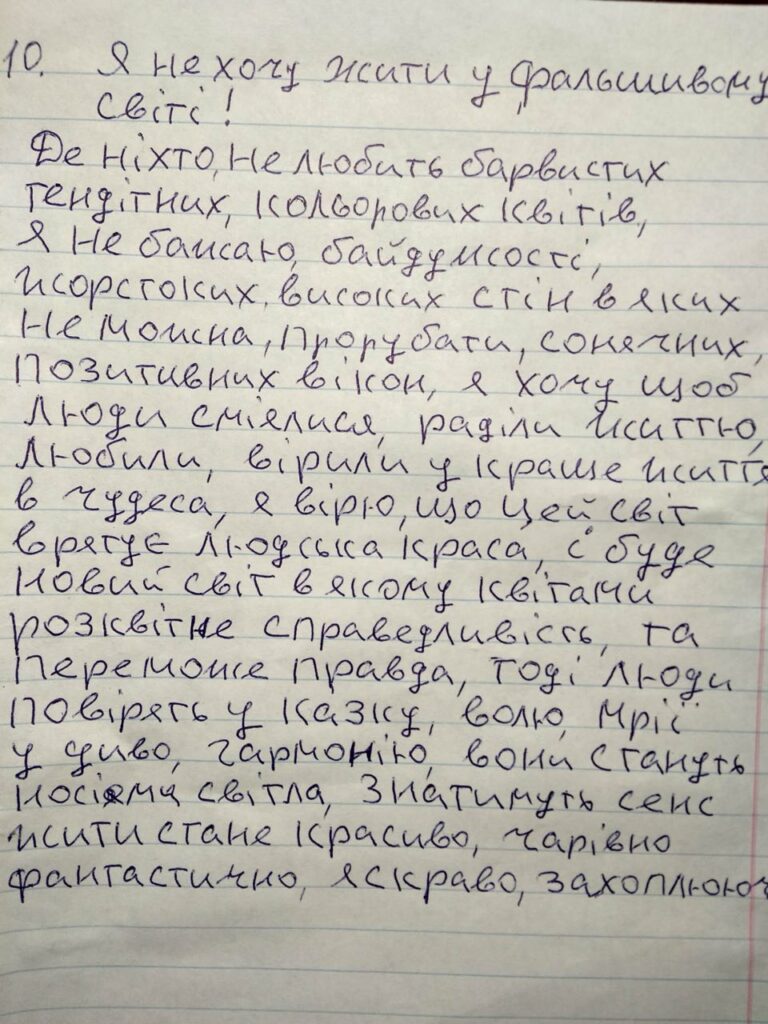 10. Я не хочу жити у фальшивому
світі!
Де ніхто, не любить барвистих
тендітних, кольорових квітів,
я не бажаю, байдужості,
жорстоких, високих стін в яких
не можна, прорубати, сонячних,
позитивних вікон, я хочу щоб
люди сміялися, раділи життю,
любили, вірили у краще життя
в чудеса, я вірю, що цей світ
врятує людська краса, і буде
новий світ в якому квітами
розквітне справедливість, та
переможе правда, тоді люди
повірять у казку, волю, мрії
у диво, гармонію, вони стануть
носіями світла, знатимуть сенс
жити стане красиво, чарівно
фантастично, яскраво, захоплююч